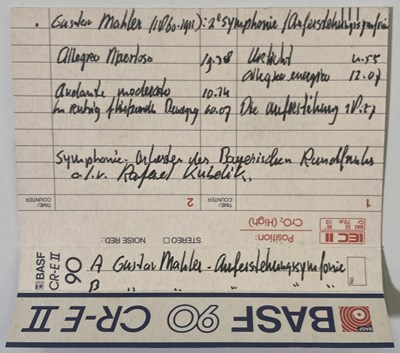 . Gustav Mahler (1860-1911): 2e Symphonie (Auferstehungssymfonie
Allegro Maestoso 19.38 Urlicht 4.55
allegro energico 12.07
Andante moderato 10.24
in ruhig fliessende Bewegung 10.07 Die Auferstehung 18.27
Symphonie-Orkester des Bayerischen Rundfunks
o.l.v. Rafael Kubelik.
TIME/
COUNTER
2
TIME/
COUNTER
1
BASF
CR-E II
90
NOISE RED.:
STEREO
Position:
CrO2 (High)
IEC II
A Gustav Mahler - Auferstehungssymfonie
B " " " "
BASF 90 CR-E II
BASF